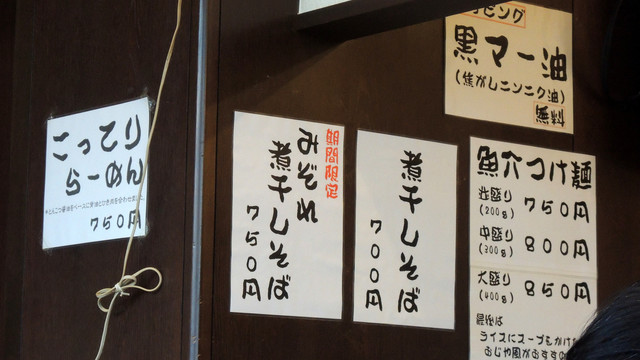 こってり
らーめん
750円
期間限定
みぞれ
煮干しそば
750円
煮干しそば
700円
黒マー油
(焦がしニンニク油)
無料
魚介つけ麺
並盛り
(200g)
750円
中盛り
(300g)
800円
大盛り
(400g)
850円
最後は
ライスにスープをかけ
おじや風がおすすめ